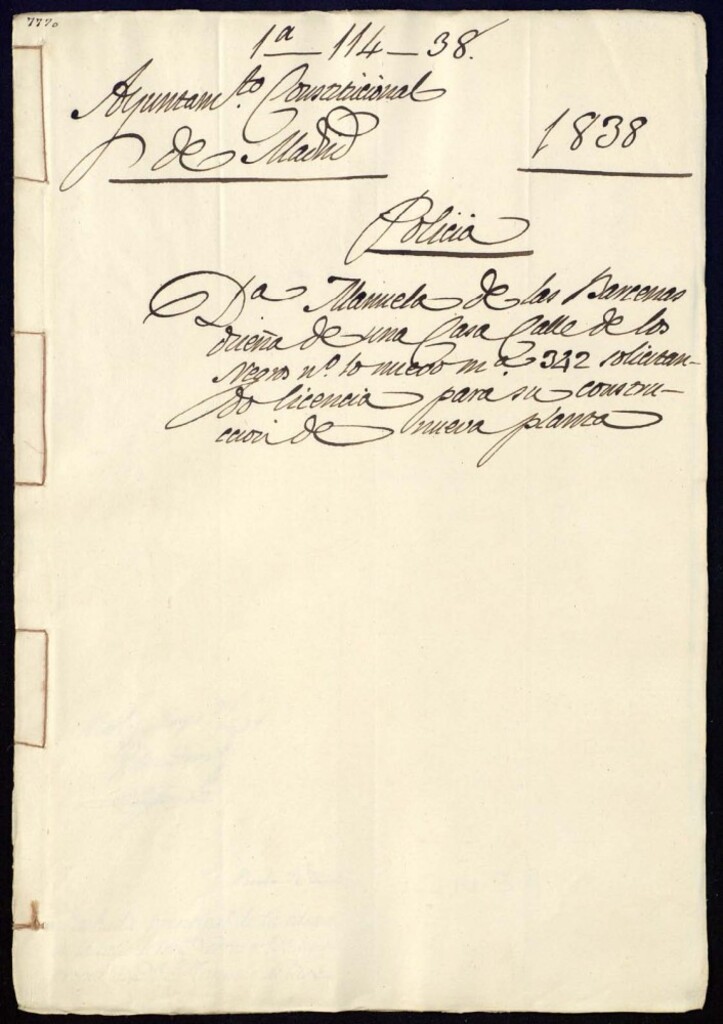 777o
1ª - 114 - 38.
Ayuntamto. Constitucional
de Madrid
1838
Policia
Dª Manuela de las Barcenas
dueña de una Casa Calle de los
Negros nº. 10 nuevo m.ª 342 solicitan-
do licencia para su constru-
ccion de nueva planta